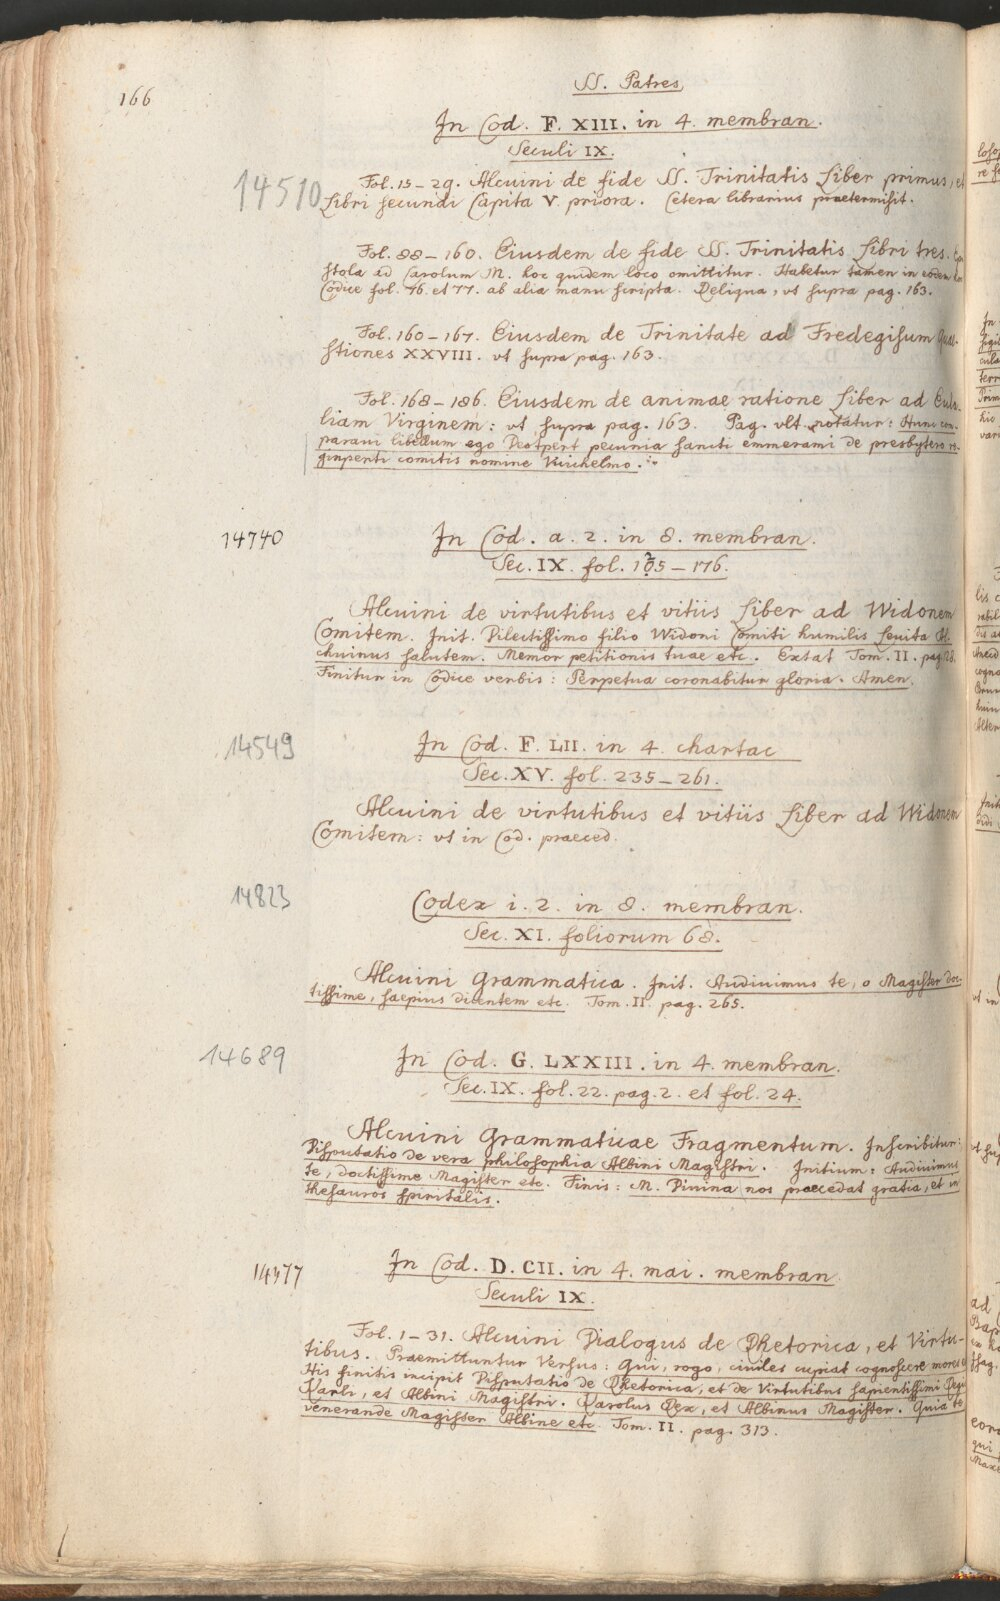 166
SS. Patres
In Cod. F. XIII. in 4. membran.
Seculi IX.
14510
Fol. 15–29. Alcuini de fide SS. Trinitatis Liber primus, et
Libri secundi Capita V. priora. Cetera librarius praetermisit.
Fol. 88–160. Eiusdem de fide SS. Trinitatis Libri tres.
stola ad Carolum M. hoc quidem loco omittitur. Habetur tamen in eodem
Codice fol. 76. et 77. ab alia manu scripta. Reliqua, vt supra pag. 163.
Fol. 160–167. Eiusdem de Trinitate ad Fredegisum Quae-
stiones XXVIII. vt supra pag. 163.
Fol. 168–186. Eiusdem de animae ratione Liber ad Eula-
liam Virginem: vt supra pag. 163. Pag. vlt. notatur: Hunc con-
paraui libellum ego Deotpert pecunia sancti emmerami de presbytero re-
ginperti comitis nomine
14740
In Cod. a. 2. in 8. membran.
Sec. IX. fol. 105–176.
Alcuini de virtutibus et vitiis Liber ad Widonem
Comitem. Init. Dilectissimo filio Widoni Comiti humilis Leuita Al-
chuinus salutem. Memor petitionis tuae etc. Extat Tom. II. pag. 128.
Finitur in Codice verbis: Perpetua coronabitur gloria. Amen.
14549
In Cod. F. LII. in 4. chartac
Sec. XV. fol. 235–261.
Alcuini de virtutibus et vitiis Liber ad Widonem
Comitem: vt in Cod. praeced.
14823
Codex i. 2. in 8. membran.
Sec. XI. foliorum 68.
Alcuini Grammatica. Init. Audiuimus te, o Magister doc-
tissime, saepius dicentem etc. Tom. II. pag. 265.
14689
In Cod. G. LXXIII. in 4. membran.
Sec. IX. fol. 22. pag. 2. et fol. 24.
Alcuini Grammaticae Fragmentum. Inscribitur:
Disputatio de vera philosophia Albini Magistri. Initium: Audiuimus
te, doctissime Magister etc. Finis: M. Diuina nos praecedat gratia, et in
thesauros spiritalis.
14377
In Cod. D. CII. in 4. mai. membran.
Seculi IX.
Fol. 1–31. Alcuini Dialogus de Rhetorica, et Virtu-
tibus. Praemittuntur Versus: Qui, rogo, ciuiles cupiat cognoscere mores
His finitis incipit Disputatio de Rhetorica, et de Virtutibus sapientissimi Regis
Karli, et Albini Magistri. Karolus Rex, et Albinus Magister. Quia te
venerande Magister Albine etc. Tom. II. pag. 313.